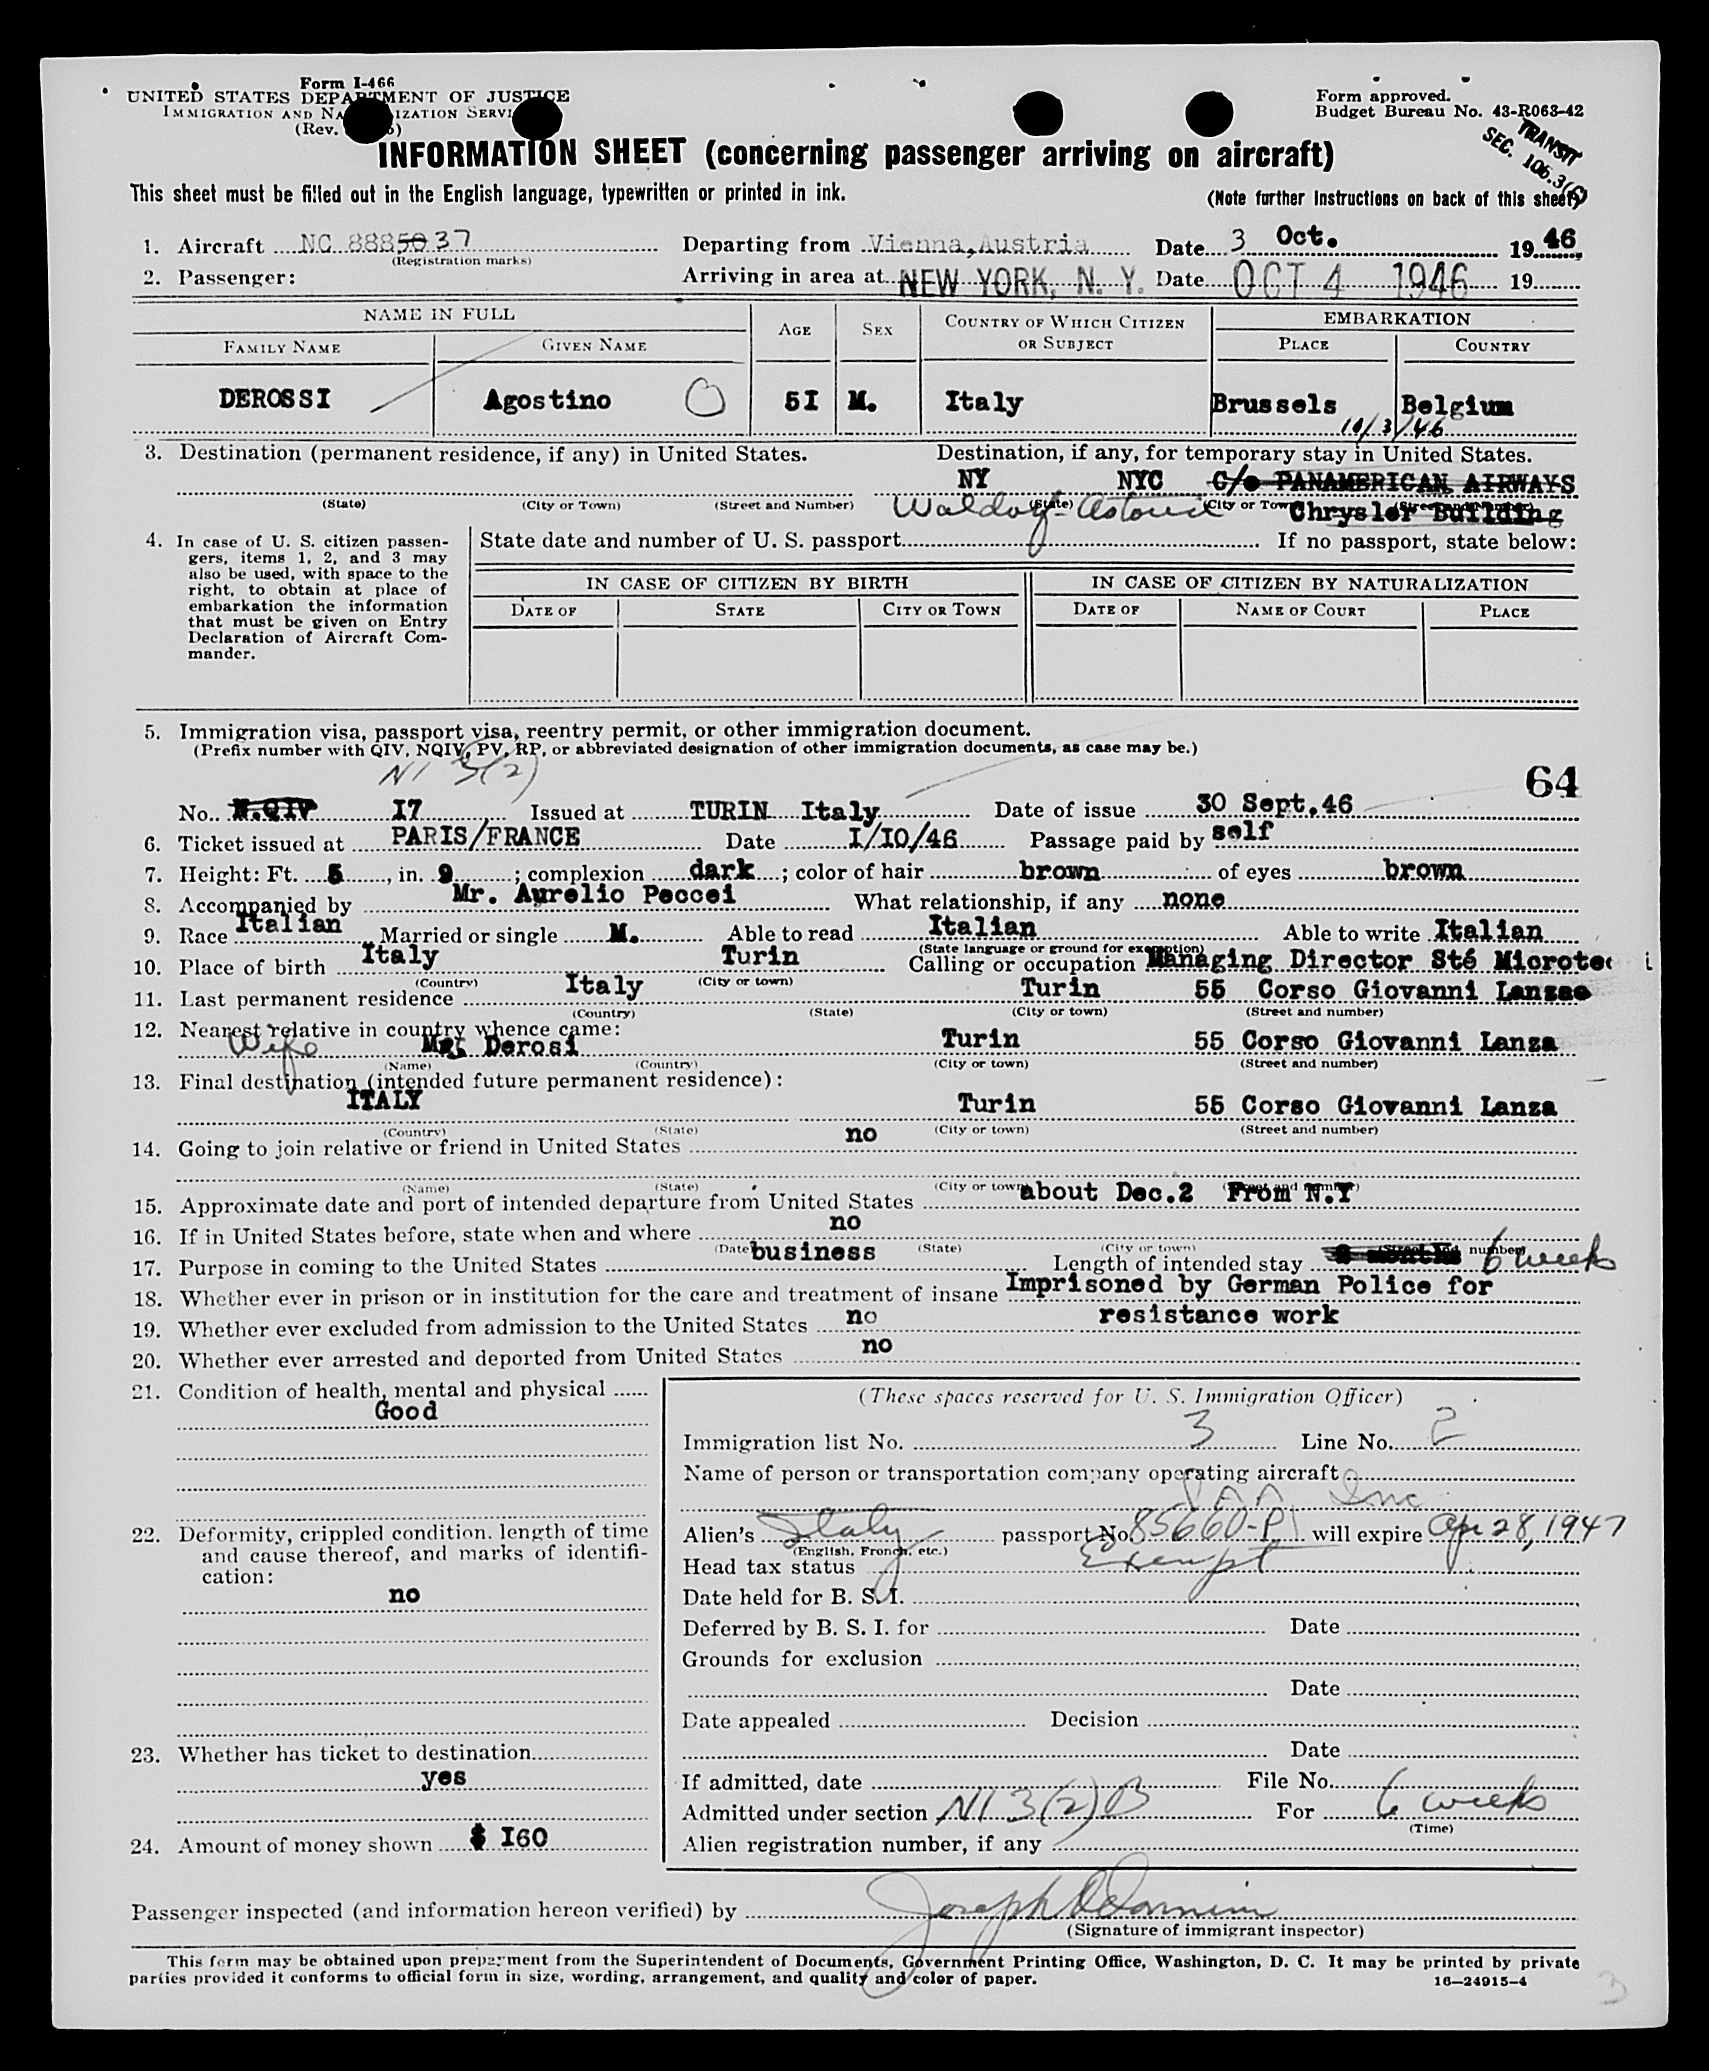 Form I-466
UNITED STATES DEPARTMENT OF JUSTICE
IMMIGRATION AND NATURALIZATION SERVICE
(Rev.
Form approved.
Budget Bureau No. 43-R063-42
TRANSIT
SEC. 106.3(6)
INFORMATION SHEET (concerning passenger arriving on aircraft)
This sheet must be filled out in the English language, typewritten or printed in ink. (Note further instructions on back of this sheet)
1. Aircraft NC 8885037 Departing from Vienna, Austria Date 3 Oct. 1946
(Registration marks)
2. Passenger: Arriving in area at NEW YORK, N. Y. Date OCT 4 1946 19
NAME IN FULL AGE SEX COUNTRY OF WHICH CITIZEN OR SUBJECT EMBARKATION
FAMILY NAME GIVEN NAME PLACE COUNTRY
DEROSSI Agostino 5I M. Italy Brussels Belgium
10/3/46
3. Destination (permanent residence, if any) in United States. Destination, if any, for temporary stay in United States.
NY NYC C/o PANAMERICAN AIRWAYS
(State) (City or Town) (Street and Number) (State) (City or Town) (Street and Number)
Waldorf-Astoria Chrysler Building
4. In case of U. S. citizen passen-
gers, items 1, 2, and 3 may
also be used, with space to the
right, to obtain at place of
embarkation the information
that must be given on Entry
Declaration of Aircraft Com-
mander.
State date and number of U. S. passport If no passport, state below:
IN CASE OF CITIZEN BY BIRTH IN CASE OF CITIZEN BY NATURALIZATION
DATE OF STATE CITY OR TOWN DATE OF NAME OF COURT PLACE
5. Immigration visa, passport visa, reentry permit, or other immigration document.
(Prefix number with QIV, NQIV, PV, RP, or abbreviated designation of other immigration documents, as case may be.)
NI 3(2)
64
No. N.QIV I7 Issued at TURIN Italy Date of issue 30 Sept.46
6. Ticket issued at PARIS/FRANCE Date I/IO/46 Passage paid by self
7. Height: Ft. 5, in. 9; complexion dark; color of hair brown of eyes brown
8. Accompanied by Mr. Aurelio Peccei What relationship, if any none
9. Race Italian Married or single M. Able to read Italian Able to write Italian
(State language or ground for exemption)
10. Place of birth Italy Turin Calling or occupation Managing Director Sté Microtec i
(Country) (City or town)
11. Last permanent residence Italy Turin 55 Corso Giovanni Lanzao
(Country) (State) (City or town) (Street and number)
12. Nearest relative in country whence came:
Wife Mrs Derosi Turin 55 Corso Giovanni Lanza
(Name) (Country) (City or town) (Street and number)
13. Final destination (intended future permanent residence):
ITALY Turin 55 Corso Giovanni Lanza
(Country) (State) (City or town) (Street and number)
14. Going to join relative or friend in United States no
(Name) (State) (City or town) (Street and number)
15. Approximate date and port of intended departure from United States about Dec.2 From N.Y
16. If in United States before, state when and where no
(Date) (State) (City or town) (Street and number)
17. Purpose in coming to the United States business Length of intended stay 6 weeks
18. Whether ever in prison or in institution for the care and treatment of insane Imprisoned by German Police for
19. Whether ever excluded from admission to the United States no resistance work
20. Whether ever arrested and deported from United States no
21. Condition of health, mental and physical
Good
22. Deformity, crippled condition, length of time
and cause thereof, and marks of identifi-
cation:
no
23. Whether has ticket to destination
yes
24. Amount of money shown $ I60
(These spaces reserved for U. S. Immigration Officer)
Immigration list No. 3 Line No. 2
Name of person or transportation company operating aircraft
PAA Inc
Alien's Italy passport No. 85660-P will expire Apr 28, 1947
(English, French, etc.)
Head tax status Exempt
Date held for B. S. I.
Deferred by B. S. I. for Date
Grounds for exclusion
Date
Date appealed Decision
Date
If admitted, date File No.
Admitted under section NI 3(2) B For 6 weeks
(Time)
Alien registration number, if any
Passenger inspected (and information hereon verified) by Joseph
(Signature of immigrant inspector)
This form may be obtained upon prepayment from the Superintendent of Documents, Government Printing Office, Washington, D. C. It may be printed by private
parties provided it conforms to official form in size, wording, arrangement, and quality and color of paper. 16—24915-4
3